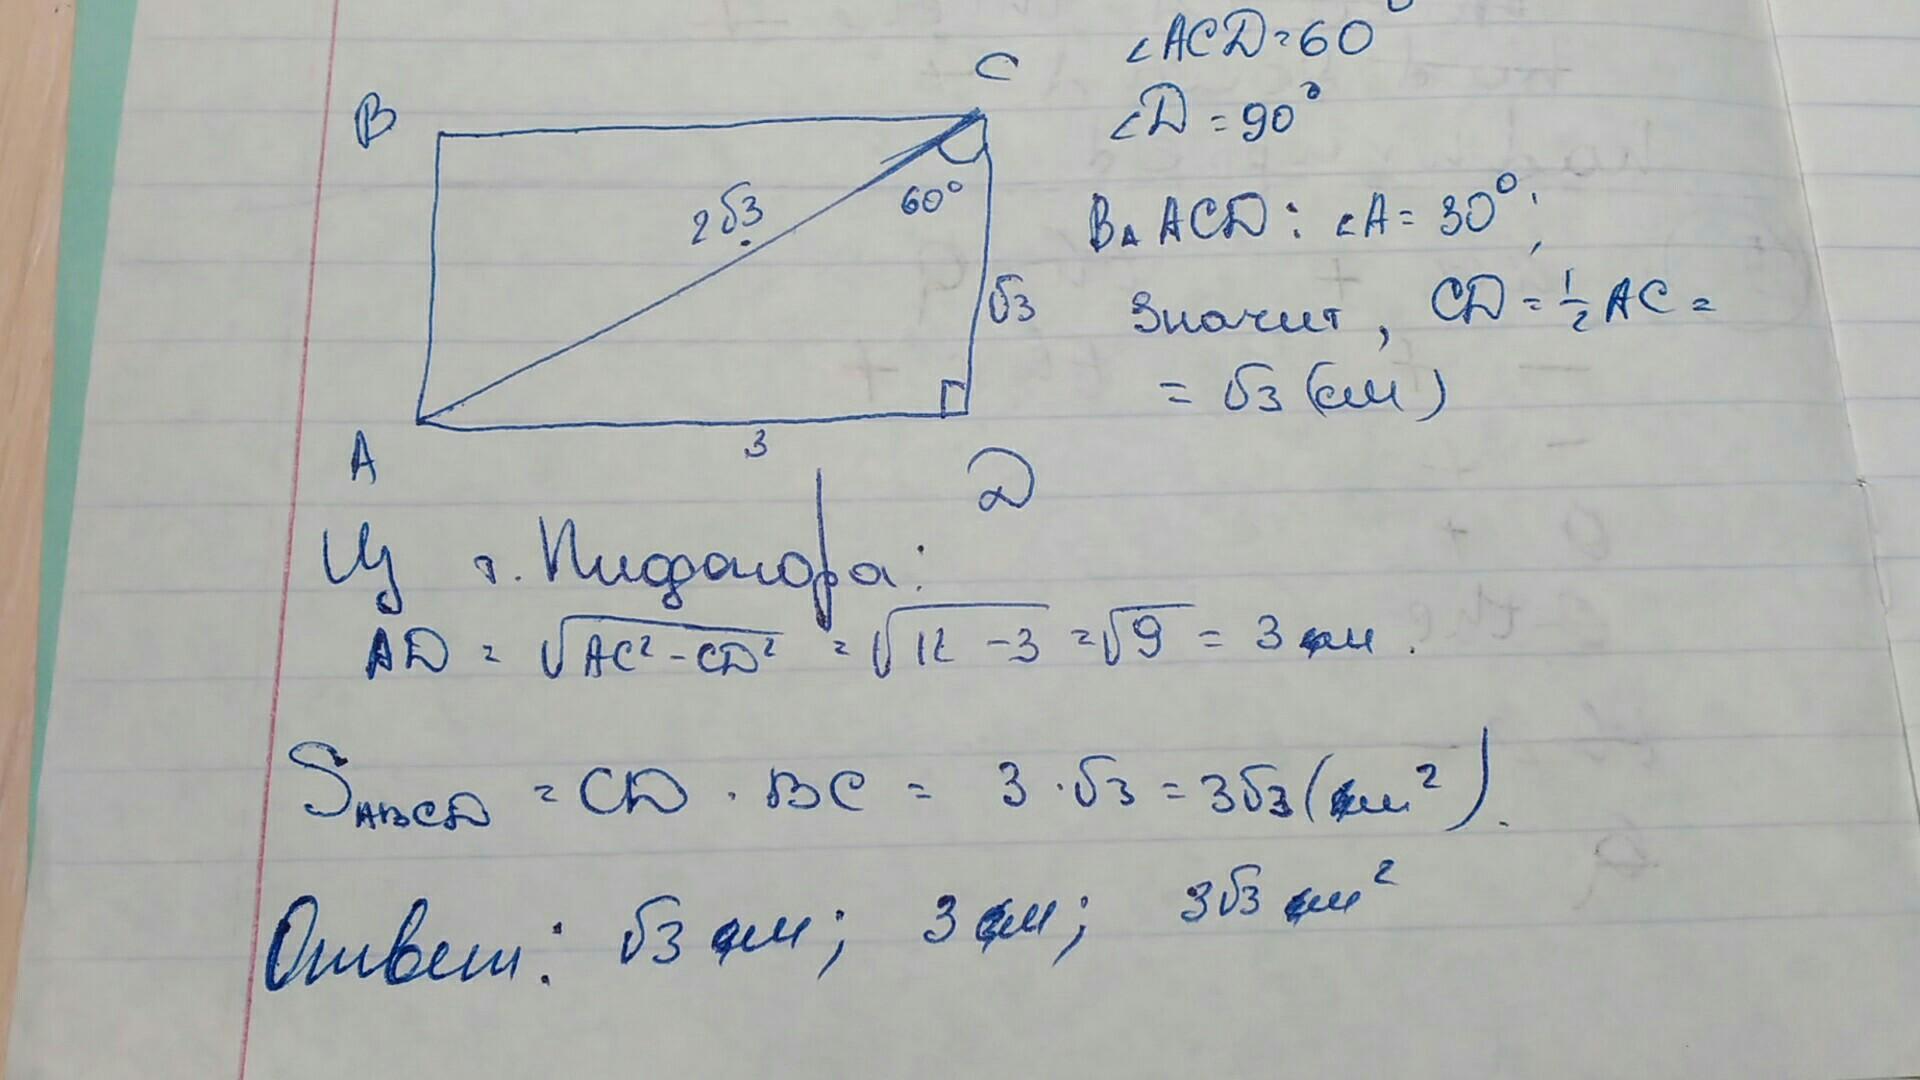 ∠ACD=60°
C
B
∠D=90°
60°
2√3
В △ ACD: ∠A=30°;
√3
Значит, CD=½AC=
=√3(см)
3
A
D
Из т. Пифагора:
AD=√(AC²-CD²)=√(12-3)=√9=3 см.
S_ABCD=CD·BC=3·√3=3√3(см²).
Ответ: √3 см; 3 см; 3√3 см²